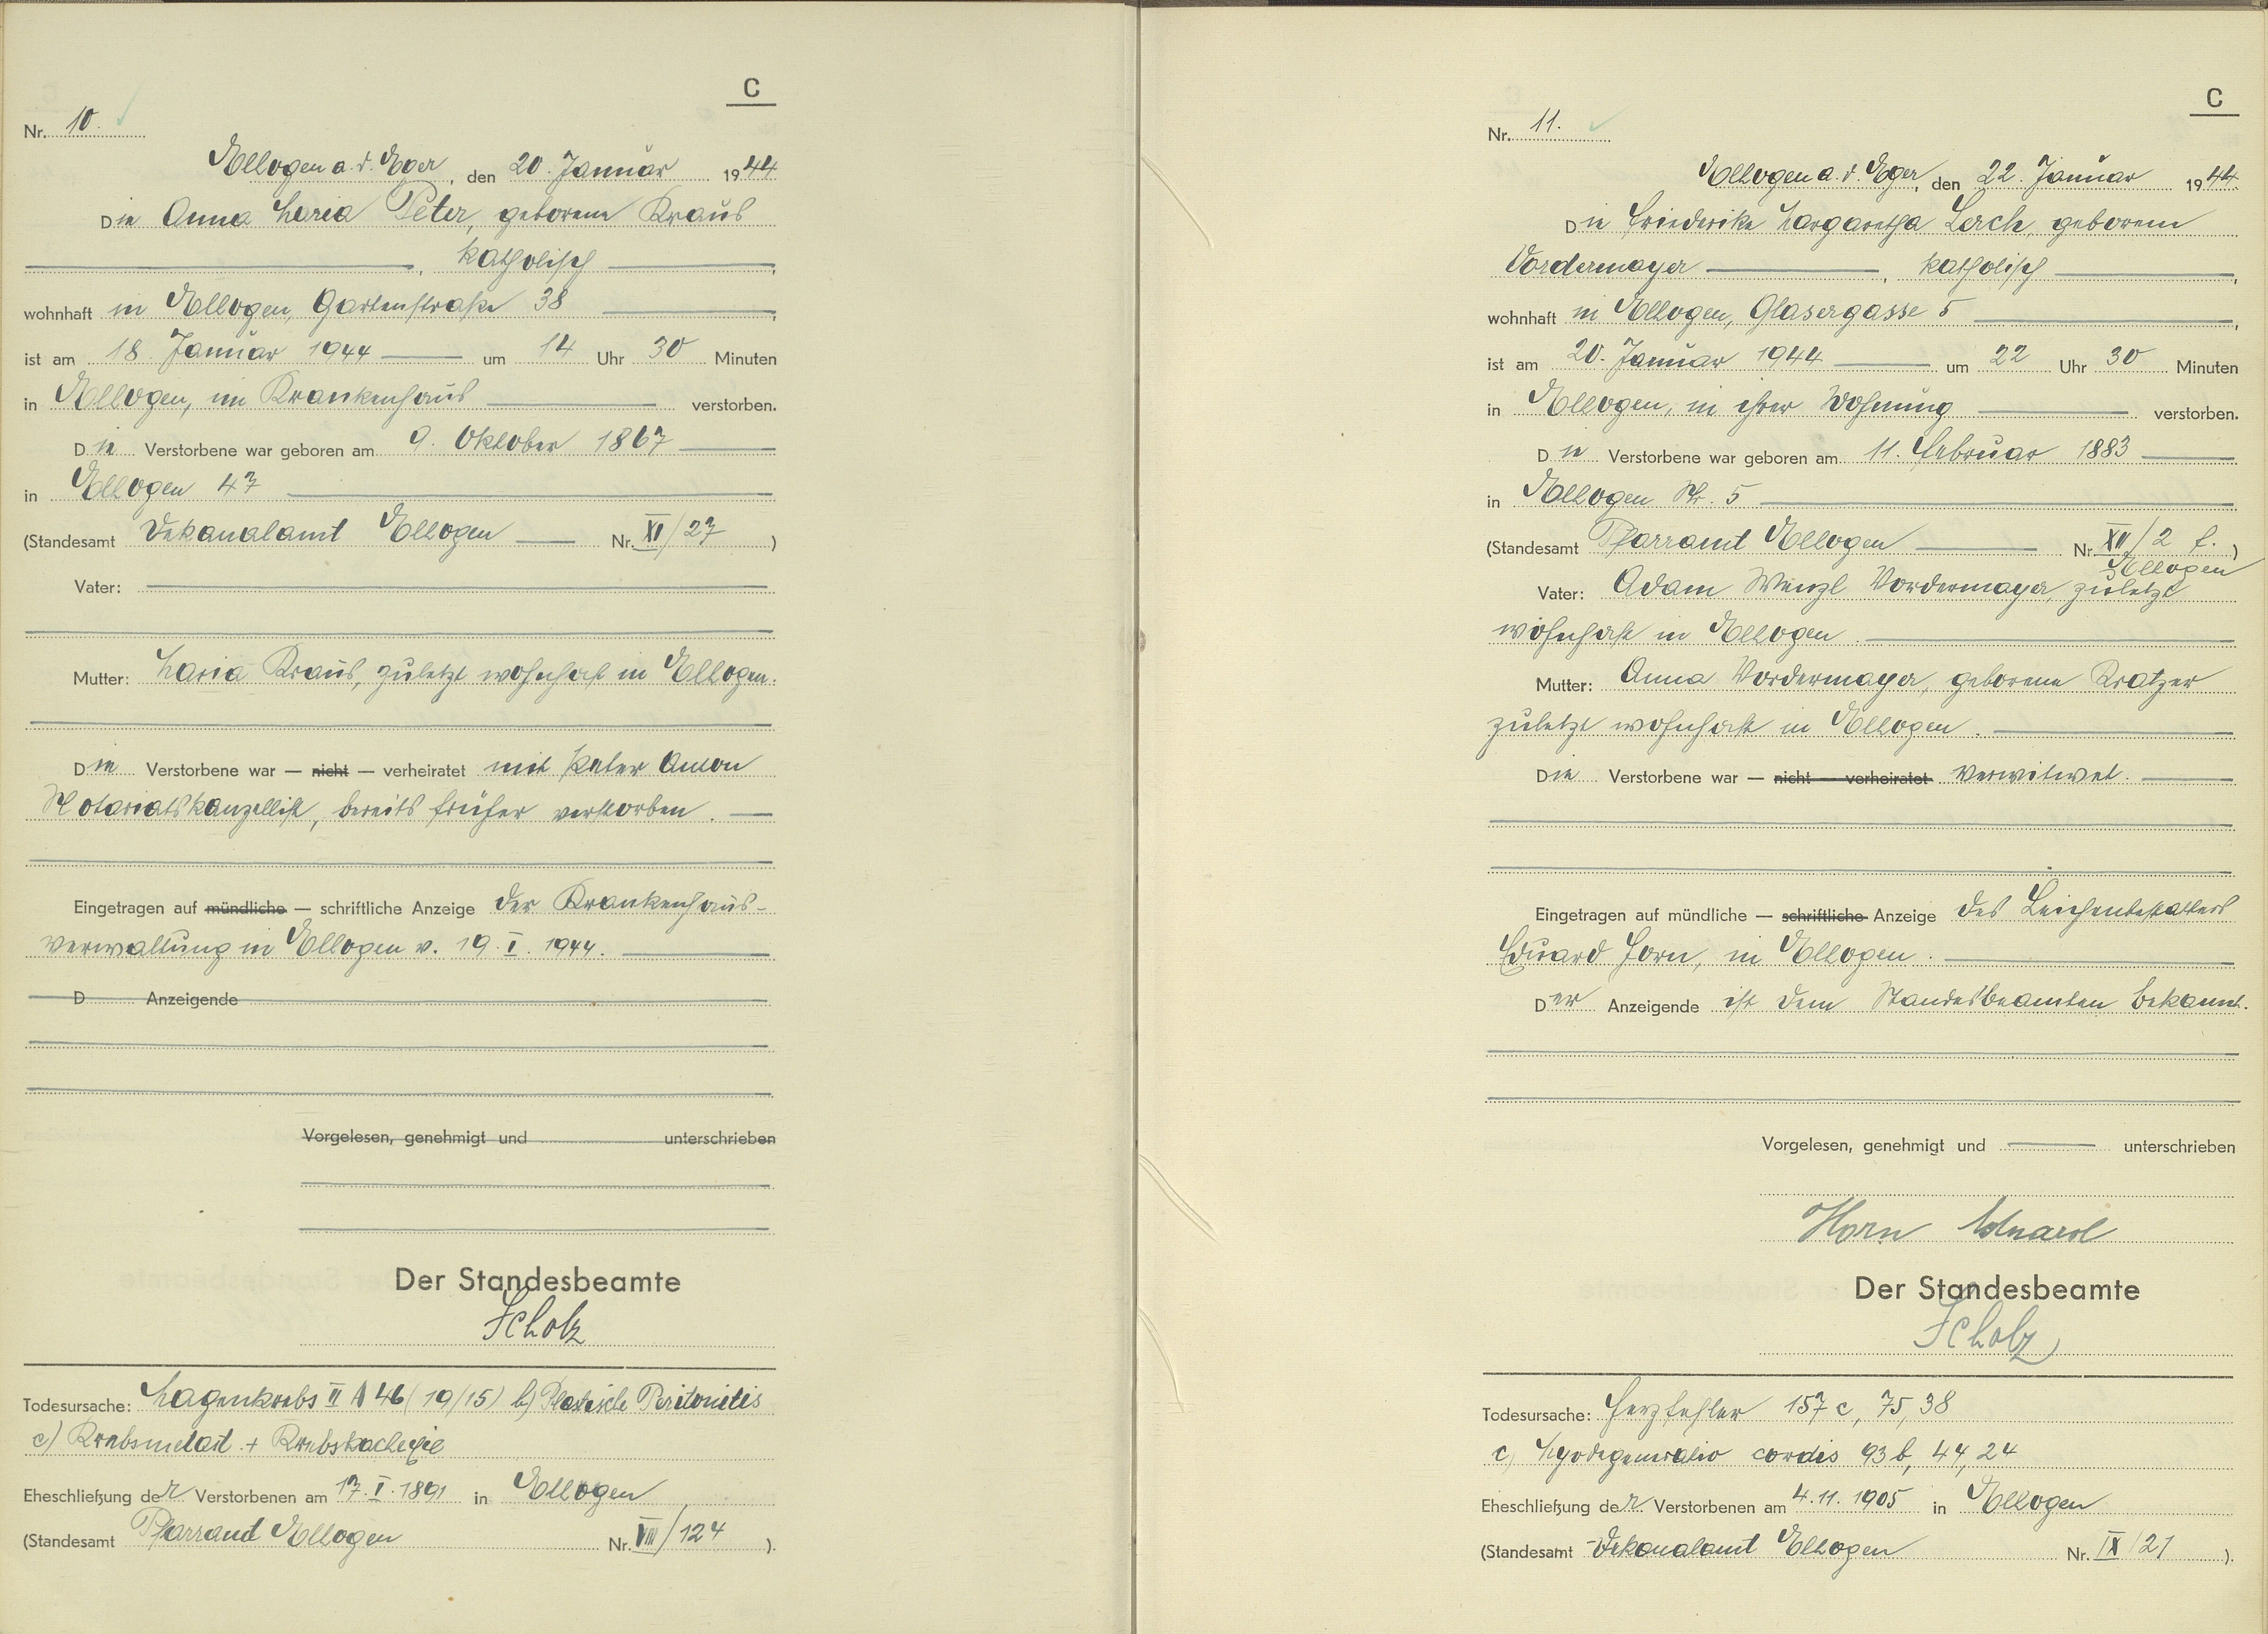 C
Nr. 10.
Elbogen a. d. Eger, den 20. Januar 1944
Die Anna Maria Peter, geborene Kraus
, katholisch ,
wohnhaft in Elbogen, Gartenstraße 38 ,
ist am 18. Januar 1944 um 14 Uhr 30 Minuten
in Elbogen, im Krankenhaus verstorben.
Die Verstorbene war geboren am 9. Oktober 1867
in Elbogen 47
(Standesamt Dekanalamt Elbogen Nr. XI/27 )
Vater:
Mutter: Maria Kraus, zuletzt wohnhaft in Elbogen.
Die Verstorbene war — nicht — verheiratet mit Peter Anton
Notariatskanzellist, bereits früher verstorben.
Eingetragen auf mündliche — schriftliche Anzeige der Krankenhaus-
verwaltung in Elbogen v. 19. I. 1944.
D Anzeigende
Vorgelesen, genehmigt und unterschrieben
Der Standesbeamte
Scholz
Todesursache: Magenkrebs II A 46 (19/15) b) Plastische Peritonitis
c) Krebsmetast. + Krebskachexie
Eheschließung der Verstorbenen am 17. I. 1891 in Elbogen
(Standesamt Pfarramt Elbogen Nr. VIII/124 ).
C
Nr. 11.
Elbogen a. d. Eger, den 22. Januar 1944.
Die Friederike Margaretha Lerch, geborene
Vordermayer , katholisch ,
wohnhaft in Elbogen, Glasergasse 5 ,
ist am 20. Januar 1944 um 22 Uhr 30 Minuten
in Elbogen, in ihrer Wohnung verstorben.
Die Verstorbene war geboren am 11. Februar 1883
in Elbogen Nr. 5
(Standesamt Pfarramt Elbogen Nr. XII/2 f. )
Elbogen
Vater: Adam Wenzl Vordermayer, zuletzt
wohnhaft in Elbogen.
Mutter: Anna Vordermayer, geborene Kratzer
zuletzt wohnhaft in Elbogen.
Die Verstorbene war — nicht — verheiratet verwitwet.
Eingetragen auf mündliche — schriftliche Anzeige des Leichenbestatters
Eduard Horn, in Elbogen.
Der Anzeigende ist dem Standesbeamten bekannt.
Vorgelesen, genehmigt und unterschrieben
Horn Eduard
Der Standesbeamte
Scholz
Todesursache: Herzfehler 157 c, 75, 38
c) Myodegeneratio cordis 93 b, 44, 24
Eheschließung der Verstorbenen am 4. 11. 1905 in Elbogen
(Standesamt Dekanalamt Elbogen Nr. IX/21 ).